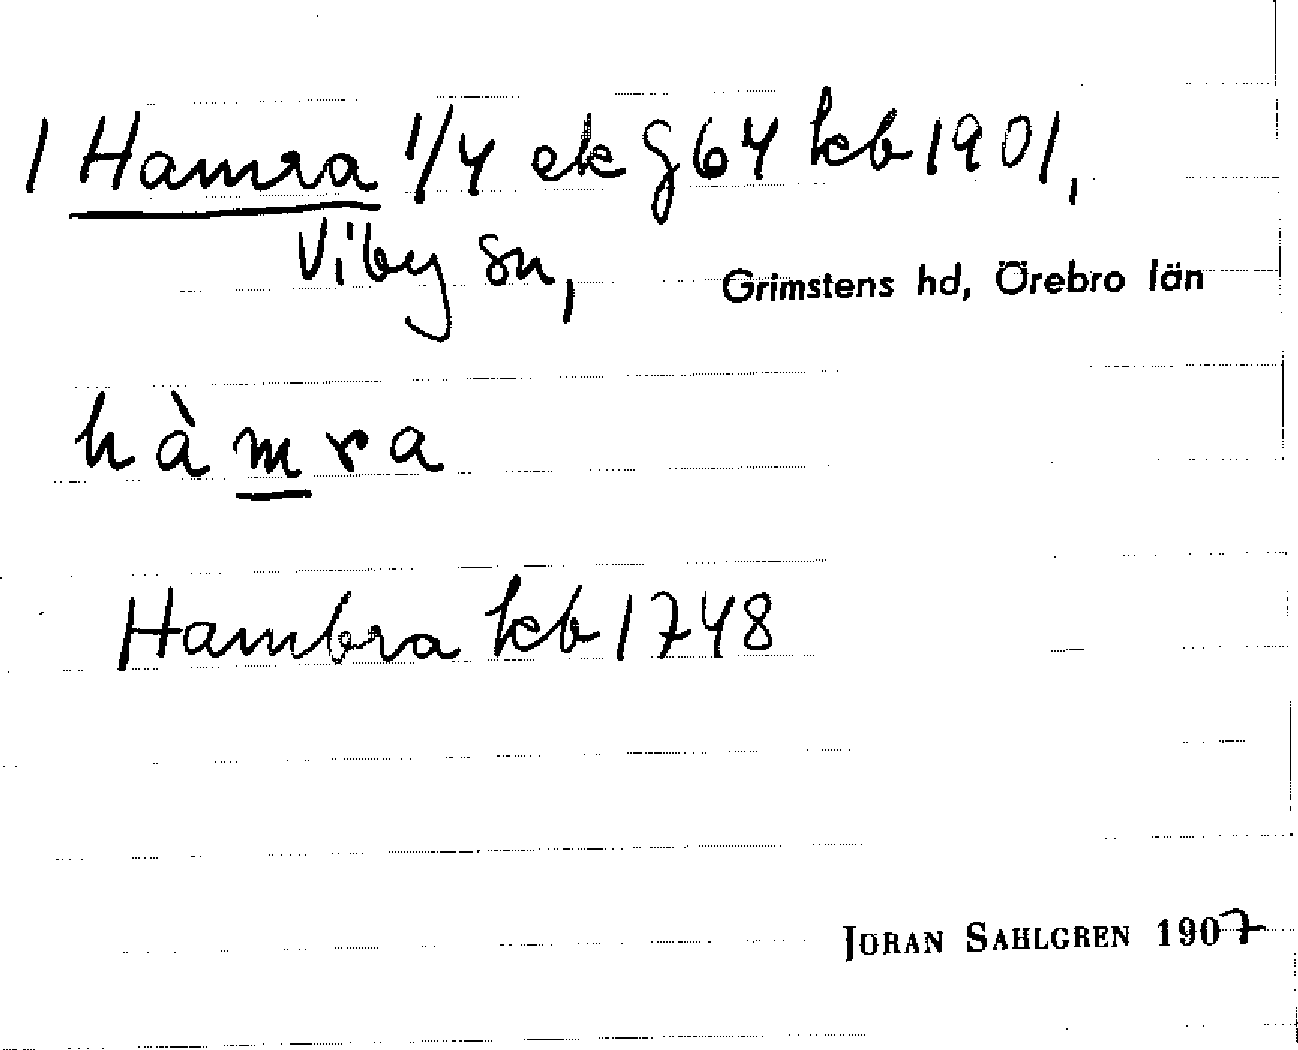 1 Hamra 1/4 ek g 64 kb 1901,
Viby sn, Grimstens hd, Örebro län
hàmra
Hambra kb 1748
JÖRAN SAHLGREN 1907